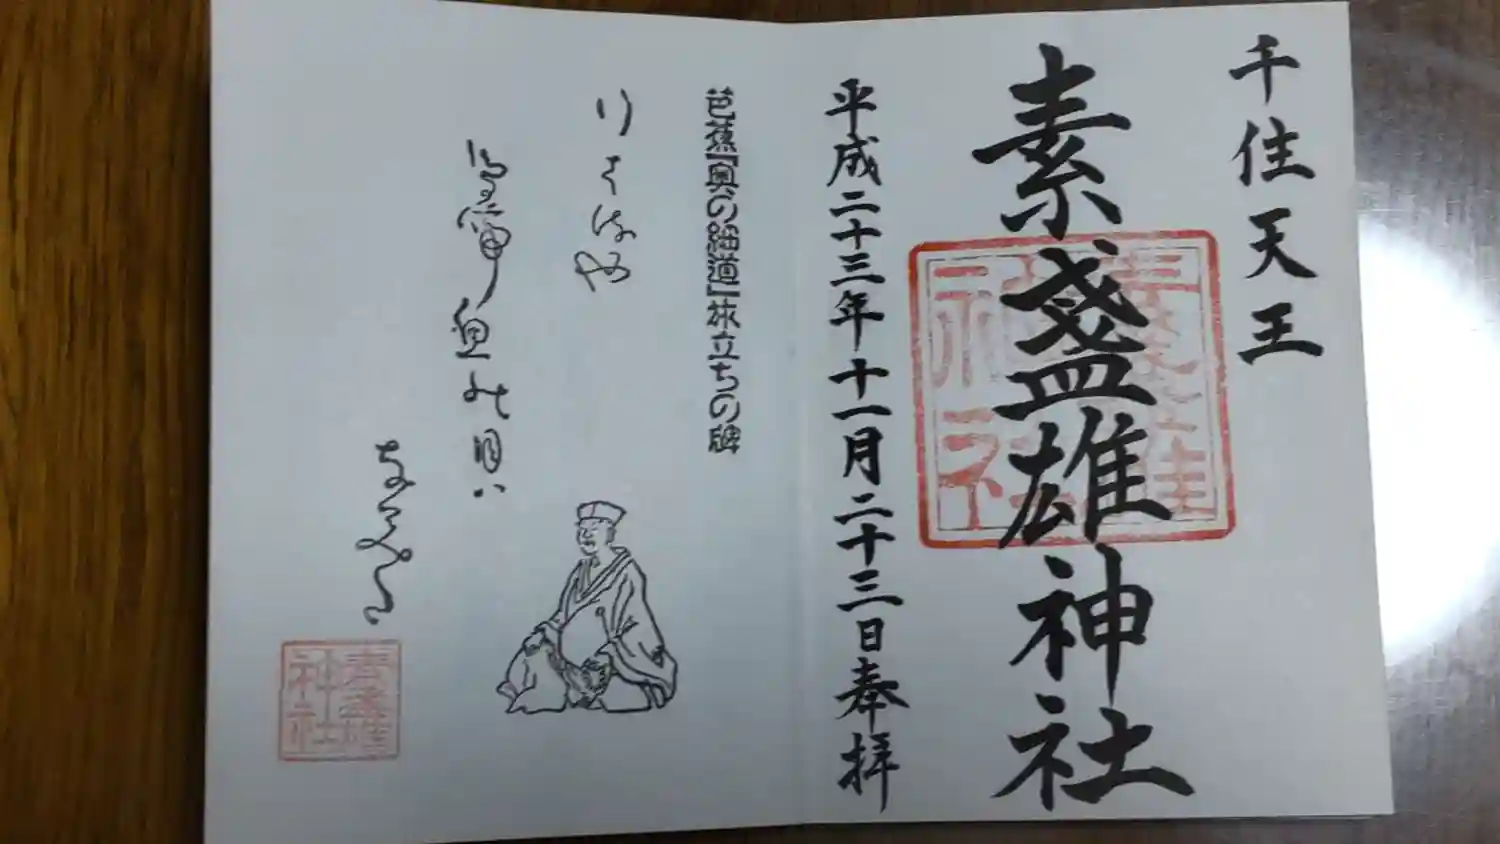 千住天王
素盞雄神社
素盞雄神社
平成二十三年十一月二十三日奉拝
芭蕉『奥の細道』旅立ちの碑
行くはるや
鳥啼魚の目ハ
なみだ
素盞雄神社